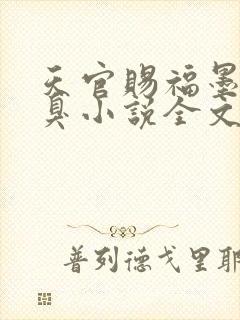 天官赐福墨
臭小说全文
普列德戈里耶